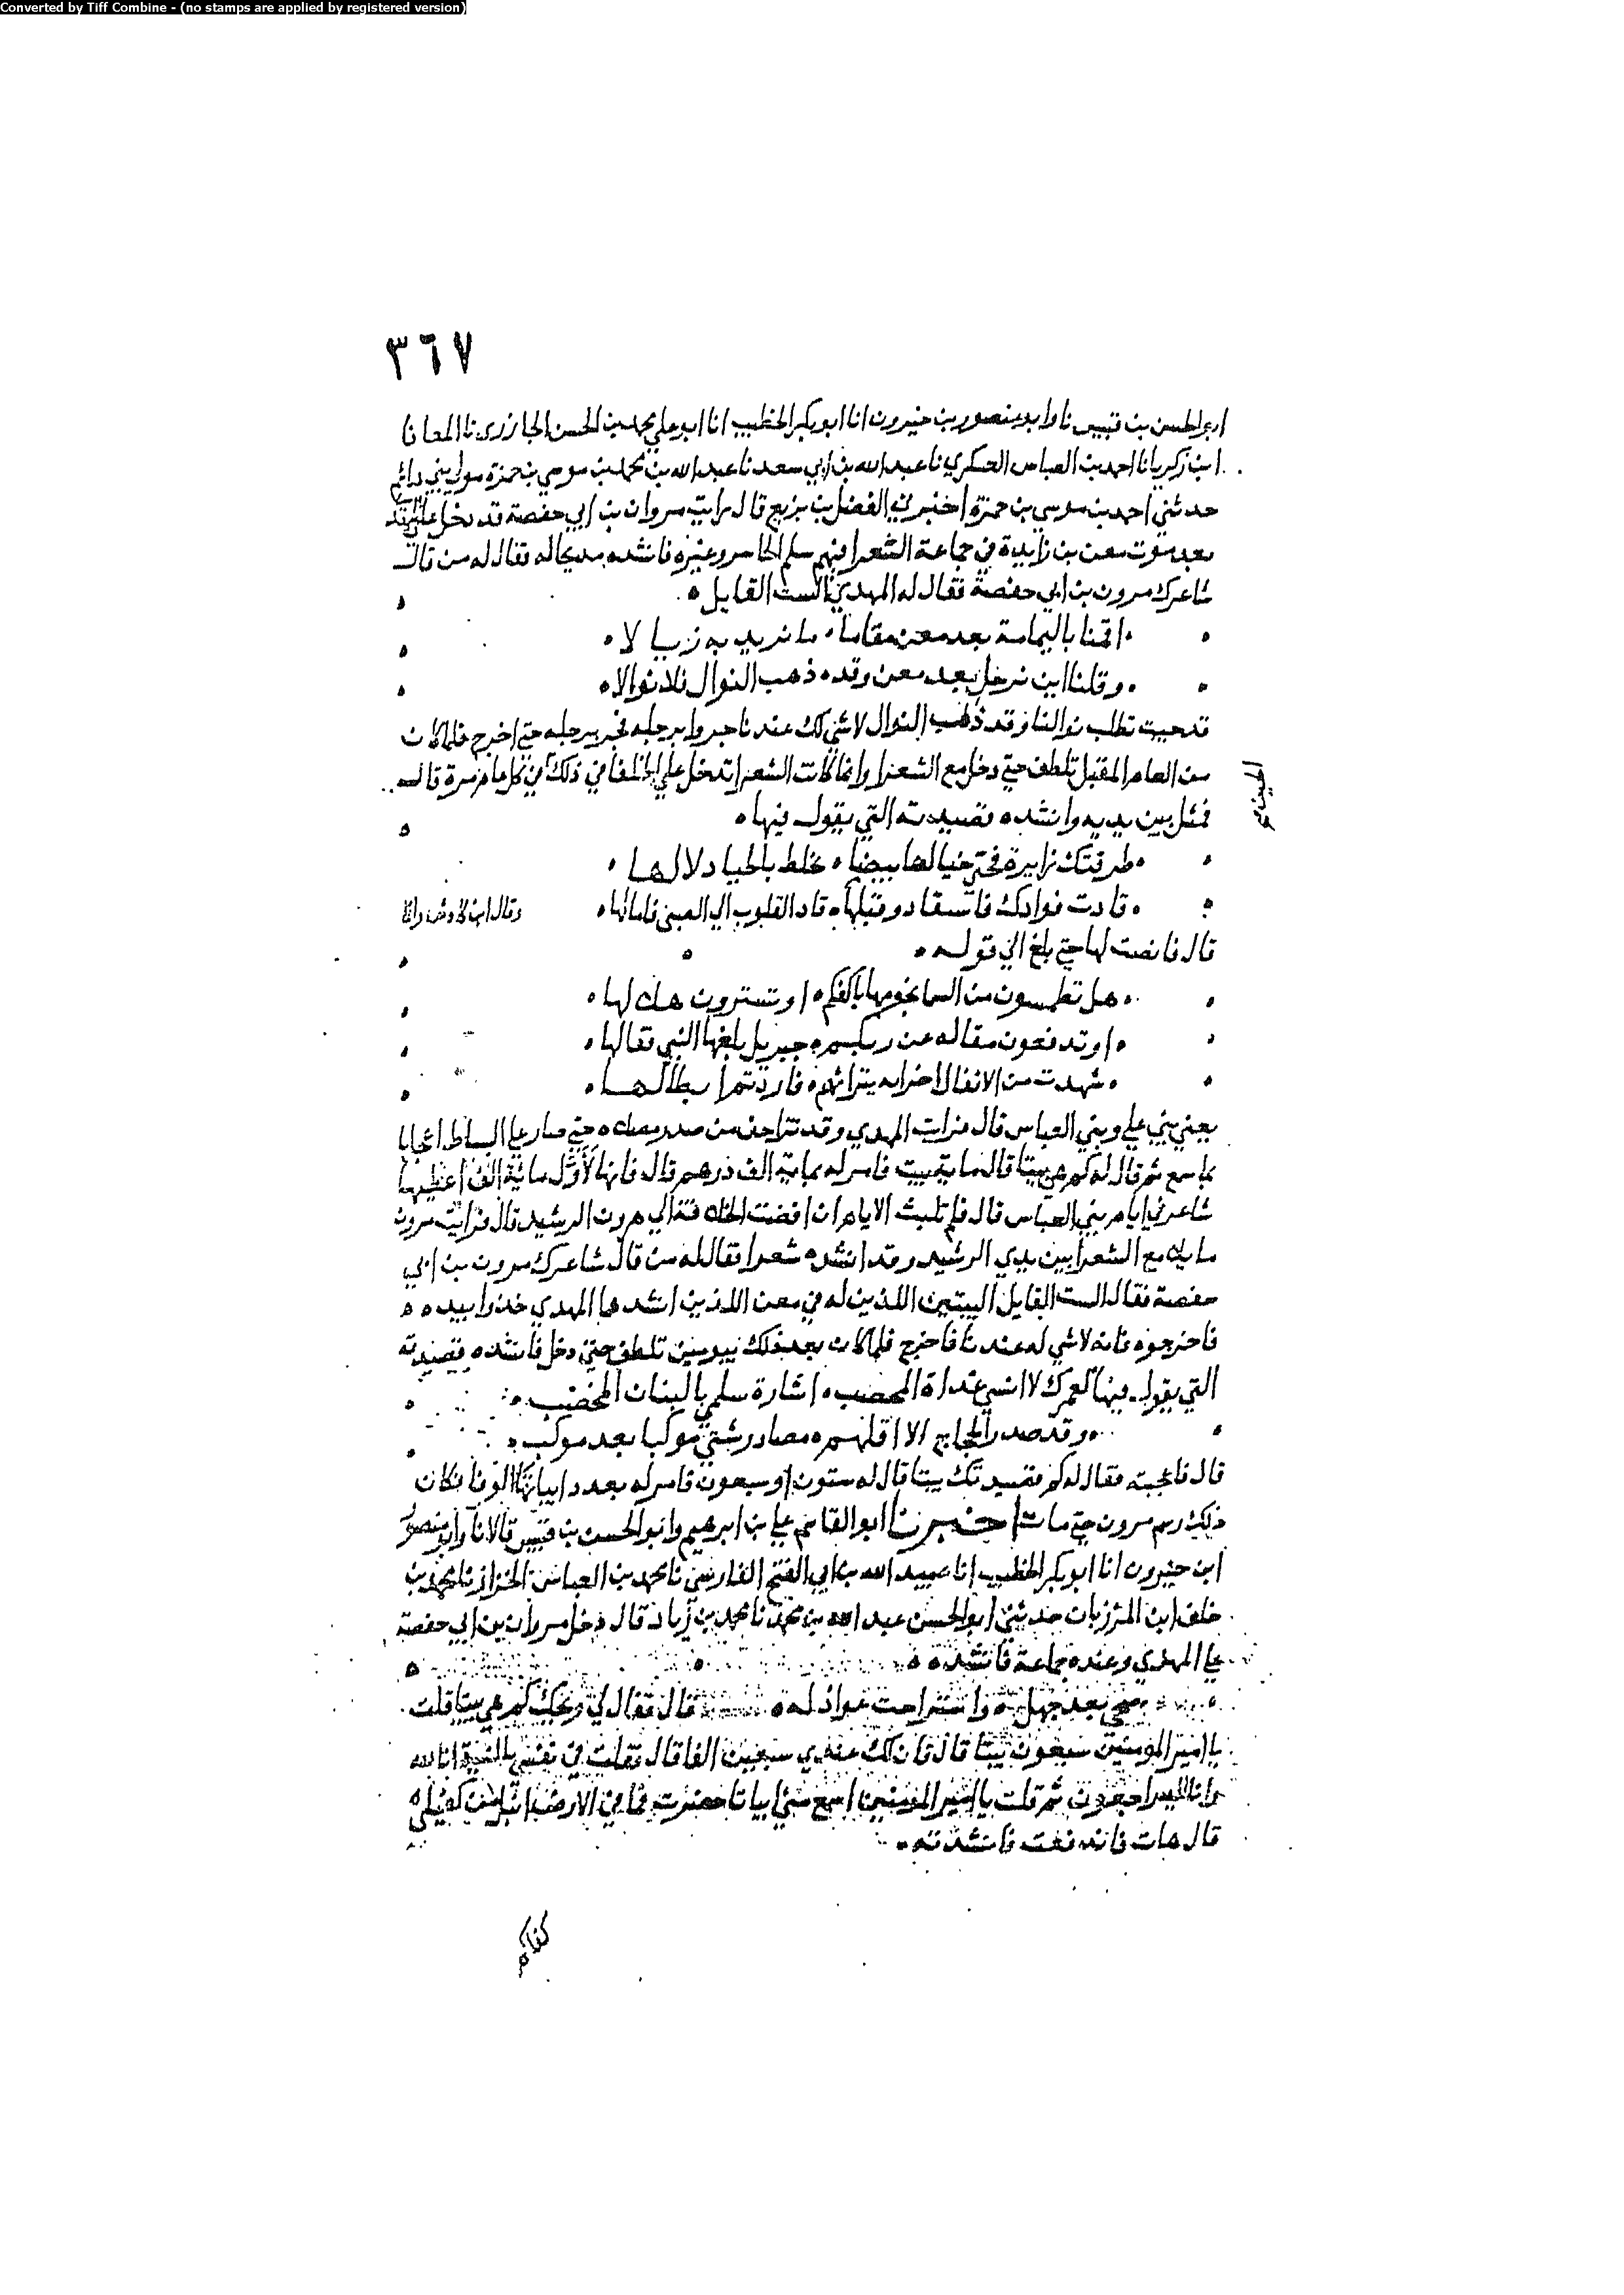 Converted by Tiff Combine - (no stamps are applied by registered version)
٣٦٧
ابو الحسن بن قبيس نا وابو منصور بن خيرون انا ابو بكر الخطيب انا ابو علي محمد بن الحسن الجازري نا المعافا
ابن زكريا نا احمد بن العباس العسكري نا عبد الله بن ابي سعد نا عبد الله بن محمد بن موسي بن حمزة مولي بني هاشم
حدثني احمد بن موسي بن حمزة اخبرني الفضل بن بزيع قال رايت مروان بن ابي حفصة قد دخل علي المهدي
بعد موت معن بن زايدة في جماعة الشعرا فيهم سلم الخاسر وغيره فانشده مديحا له فقال له من قال
شاعرك مرون بن ابي حفصة فقال له المهدي الست القايل ه
اقمنا باليمامة بعد معن مقاما ما نريد به زيالا ه
وقلنا اين نرحل بعد معن وقد ه ذهب النوال فلا نوالا ه
قد جيت تطلب نوالنا وقد ذهب النوال لا شي لك عندنا جروا برجله فجر برجله حتي اخرج فلما كان
من العام المقبل تلطف حتي دخل مع الشعرا وانما كانت الشعرا تدخل علي الخلفا في ذلك الحين في كل عام مرة قال
فمثل بين يديه وانشده قصيدته التي يقول فيها ه
طرقتك زايرة فحي خيالها بيضا ه تخلط بالحيا دلالها ه
قادت فوادك فاستقاد وقبلها ه قاد القلوب الي الصبي فامالها ه
قال فانصت لها حتي بلغ الي قوله ه
هل تطمسون من السما نجومها باكفكم ه او تسترون هلالها ه
او تدفعون مقاله عن ربكم ه جبريل بلغها النبي فقالها ه
شهدت من الانفال اخر ايه بتراثهم ه فاردتم ابطالها ه
يعني بني علي وبني العباس قال فرايت المهدي وقد تزاحف من صدر مصلاه حتي صار علي البساط اعجابا
بما سمع ثم قال له كم هي بيتا قال مايه بيت فامر له بماية الف درهم قال فانها لاول مائة الف اعطيها
شاعر في ايام بني العباس قال فلم تلبث الايام ان افضت الخلافة الي هرون الرشيد قال فرايت مرون
ماثلا مع الشعرا بين يدي الرشيد وقد انشده شعرا فقال له من قال شاعرك مرون بن ابي
حفصة فقال الست القايل البيتين اللذين له في معن اللذين انشدهما المهدي خذوا بيده ه
فاخرجوه فانه لا شي له عندنا فاخرج فلما كان بعد ذلك بيومين تلطف حتي دخل فانشده قصيدته
التي يقول فيها لعمرك لا انسي غداة المحصب ه اشارة سلمي بالبنان المخضب
وقد صدر الحجاج الا اقلهم ه مصادر شتي موكبا بعد موكب ه
قال فاعجبته فقال له كم قصيدتك بيتا قال له ستون او سبعون فامر له بعدد ابياتها الوفا فكان
ذلك رسم مرون حتي مات اخبرنا ابو القاسم علي بن ابرهيم وابو الحسن بن قبيس قالا نا وابو منصور
ابن خيرون انا ابو بكر الخطيب انا عبيد الله بن ابي الفتح الفارسي نا محمد بن العباس الخزاز نا محمد بن
خلف ابن المرزبان حدثني ابو الحسن عبد الله بن محمد نا محمد بن زياد قال دخل مروان بن ابي حفصة
علي المهدي وعنده جماعة فانشده ه
صحي بعد جهل ه واستراحت عواذله ه قال فقال لي ويحك كم هي بيتا قلت
يا امير المومنين سبعون بيتا قال فان لك عندي سبعين الفا قال فقلت في نفسي بالنسية انا لله
وانا اليه راجعون ثم قلت يا امير المومنين اسمع مني ابياتا حضرت فما في الارض انبل من كفيلي
قال هات فاندفعت فانشدته ه